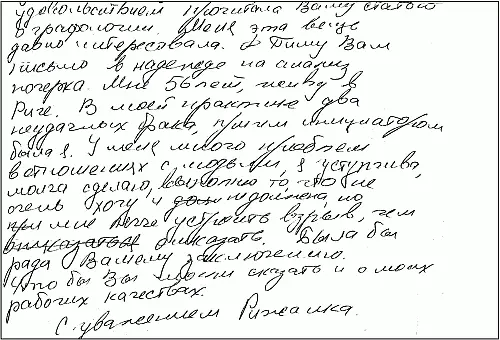 удовольствием прочитала Вашу статью
о графологии. Меня эта вещь
давно интересовала. Пишу Вам
письмо в надежде на анализ
почерка. Мне 56 лет, живу в
Риге. В моей практике два
неудачных брака, причем инициатором
была я. У меня много проблем
в отношениях с людьми, я уступчива,
молча сделаю, выполню то, что не
очень хочу и не должна, но
при мне легче устроить взрыв, чем
отказать. Была бы
рада Вашему заключению.
Что бы Вы могли сказать и о моих
рабочих качествах.
С уважением Рижанка.